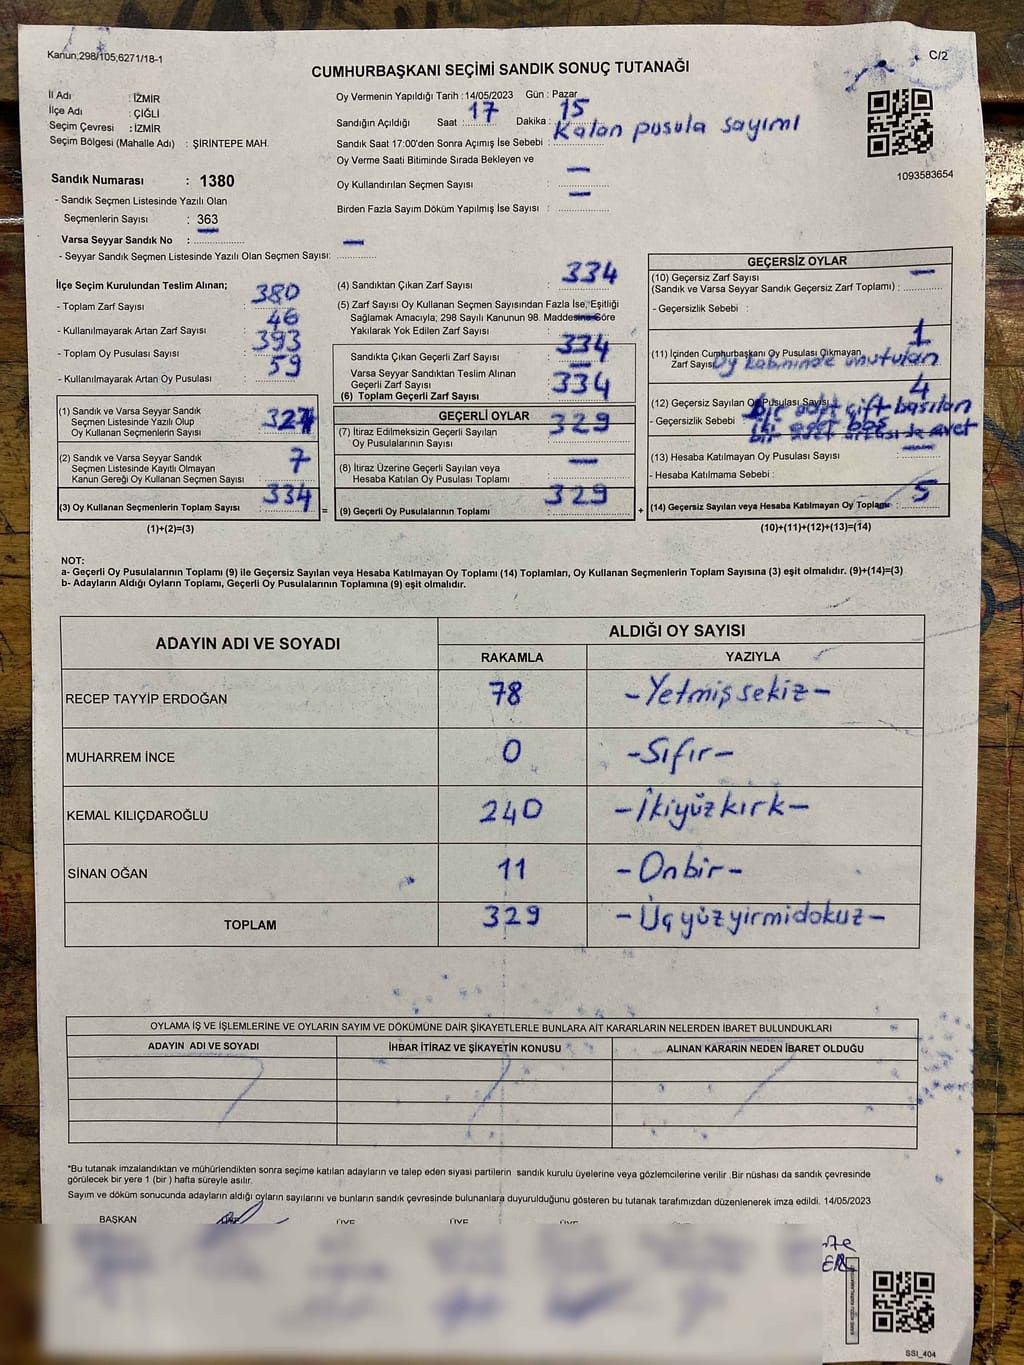 Kanun;298/105;6271/18-1
C/2
CUMHURBAŞKANI SEÇİMİ SANDIK SONUÇ TUTANAĞI
İl Adı : İZMİR
İlçe Adı : ÇİĞLİ
Seçim Çevresi : İZMİR
Seçim Bölgesi (Mahalle Adı) : ŞİRİNTEPE MAH.
Sandık Numarası : 1380
- Sandık Seçmen Listesinde Yazılı Olan
Seçmenlerin Sayısı : 363
Varsa Seyyar Sandık No : ............... —
- Seyyar Sandık Seçmen Listesinde Yazılı Olan Seçmen Sayısı: ............
Oy Vermenin Yapıldığı Tarih : 14/05/2023 Gün : Pazar
Sandığın Açıldığı Saat : 17 Dakika : 15
Sandık Saat 17:00'den Sonra Açımış İse Sebebi : Kalan pusula sayımı
Oy Verme Saati Bitiminde Sırada Bekleyen ve
Oy Kullandırılan Seçmen Sayısı : —
Birden Fazla Sayım Döküm Yapılmış İse Sayısı : —
1093583654
İlçe Seçim Kurulundan Teslim Alınan;
- Toplam Zarf Sayısı : 380
- Kullanılmayarak Artan Zarf Sayısı : 46
- Toplam Oy Pusulası Sayısı : 393
- Kullanılmayarak Artan Oy Pusulası : 59
(1) Sandık ve Varsa Seyyar Sandık
Seçmen Listesinde Yazılı Olup
Oy Kullanan Seçmenlerin Sayısı : 327
(2) Sandık ve Varsa Seyyar Sandık
Seçmen Listesinde Kayıtlı Olmayan
Kanun Gereği Oy Kullanan Seçmen Sayısı : 7
(3) Oy Kullanan Seçmenlerin Toplam Sayısı : 334
(1)+(2)=(3)
=
(4) Sandıktan Çıkan Zarf Sayısı : 334
(5) Zarf Sayısı Oy Kullanan Seçmen Sayısından Fazla İse, Eşitliği
Sağlamak Amacıyla; 298 Sayılı Kanunun 98. Maddesine Göre
Yakılarak Yok Edilen Zarf Sayısı : —
Sandıkta Çıkan Geçerli Zarf Sayısı : 334
Varsa Seyyar Sandıktan Teslim Alınan
Geçerli Zarf Sayısı : —
(6) Toplam Geçerli Zarf Sayısı : 334
GEÇERLİ OYLAR
(7) İtiraz Edilmeksizin Geçerli Sayılan
Oy Pusulalarının Sayısı : 329
(8) İtiraz Üzerine Geçerli Sayılan veya
Hesaba Katılan Oy Pusulası Toplamı : —
(9) Geçerli Oy Pusulalarının Toplamı : 329
+
GEÇERSİZ OYLAR
(10) Geçersiz Zarf Sayısı
(Sandık ve Varsa Seyyar Sandık Geçersiz Zarf Toplamı) : —
- Geçersizlik Sebebi :
(11) İçinden Cumhurbaşkanı Oy Pusulası Çıkmayan
Zarf Sayısı 1
Oy kabininde unutulan
(12) Geçersiz Sayılan Oy Pusulası Sayısı 4
- Geçersizlik Sebebi bir adet çift basılan
iki adet boş
(13) Hesaba Katılmayan Oy Pusulası Sayısı : —
- Hesaba Katılmama Sebebi :
(14) Geçersiz Sayılan veya Hesaba Katılmayan Oy Toplamı : 5
(10)+(11)+(12)+(13)=(14)
NOT:
a- Geçerli Oy Pusulalarının Toplamı (9) ile Geçersiz Sayılan veya Hesaba Katılmayan Oy Toplamı (14) Toplamları, Oy Kullanan Seçmenlerin Toplam Sayısına (3) eşit olmalıdır. (9)+(14)=(3)
b- Adayların Aldığı Oyların Toplamı, Geçerli Oy Pusulalarının Toplamına (9) eşit olmalıdır.
ADAYIN ADI VE SOYADI
ALDIĞI OY SAYISI
RAKAMLA YAZIYLA
RECEP TAYYİP ERDOĞAN 78 -Yetmişsekiz-
MUHARREM İNCE 0 -Sıfır-
KEMAL KILIÇDAROĞLU 240 -İkiyüzkırk-
SİNAN OĞAN 11 -Onbir-
TOPLAM 329 -Üçyüzyirmidokuz-
OYLAMA İŞ VE İŞLEMLERİNE VE OYLARIN SAYIM VE DÖKÜMÜNE DAİR ŞİKAYETLERLE BUNLARA AİT KARARLARIN NELERDEN İBARET BULUNDUKLARI
ADAYIN ADI VE SOYADI İHBAR İTİRAZ VE ŞİKAYETİN KONUSU ALINAN KARARIN NEDEN İBARET OLDUĞU
*Bu tutanak imzalandıktan ve mühürlendikten sonra seçime katılan adayların ve talep eden siyasi partilerin sandık kurulu üyelerine veya gözlemcilerine verilir. Bir nüshası da sandık çevresinde
görülecek bir yere 1 (bir) hafta süreyle asılır.
Sayım ve döküm sonucunda adayların aldığı oyların sayılarını ve bunların sandık çevresinde bulunanlara duyurulduğunu gösteren bu tutanak tarafımızdan düzenlenerek imza edildi. 14/05/2023
BAŞKAN ÜYE ÜYE ÜYE ÜYE
SSI_404